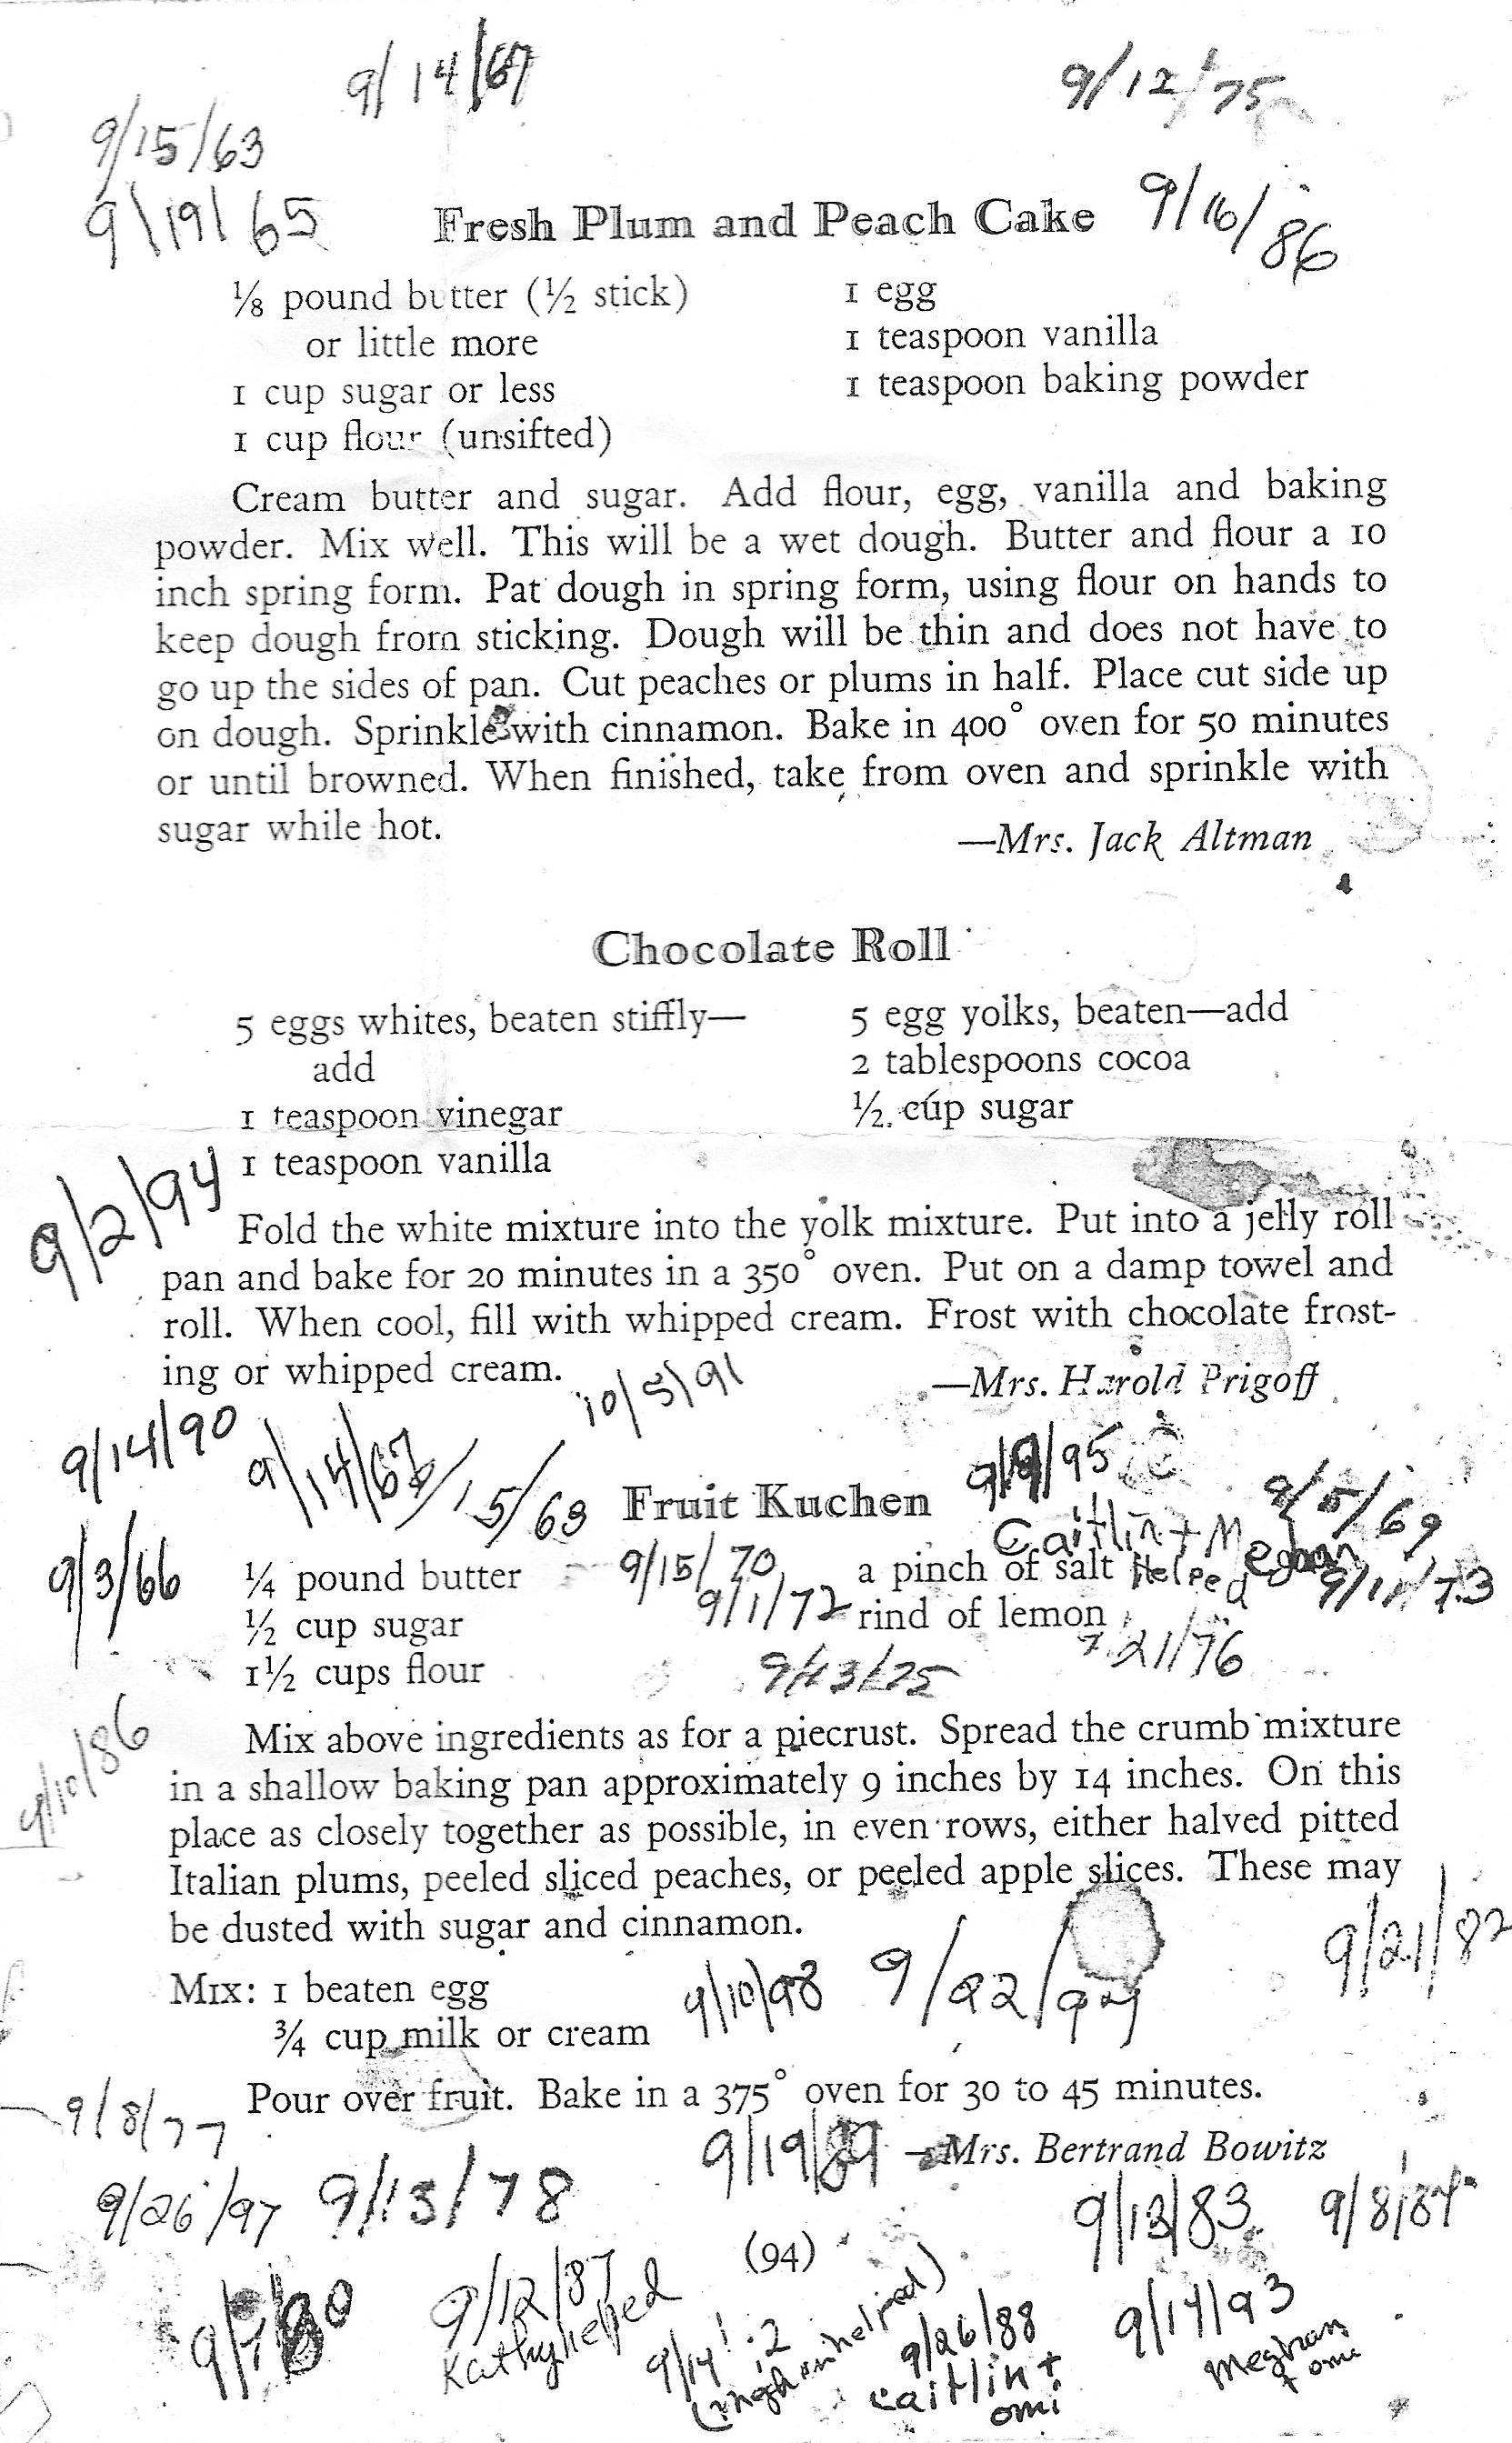 9/14/67
9/12/75
9/15/63
9/19/65
Fresh Plum and Peach Cake
9/16/86
⅛ pound butter (½ stick)
or little more
1 cup sugar or less
1 cup flour (unsifted)
1 egg
1 teaspoon vanilla
1 teaspoon baking powder
Cream butter and sugar. Add flour, egg, vanilla and baking
powder. Mix well. This will be a wet dough. Butter and flour a 10
inch spring form. Pat dough in spring form, using flour on hands to
keep dough from sticking. Dough will be thin and does not have to
go up the sides of pan. Cut peaches or plums in half. Place cut side up
on dough. Sprinkle with cinnamon. Bake in 400° oven for 50 minutes
or until browned. When finished, take from oven and sprinkle with
sugar while hot.
—Mrs. Jack Altman
Chocolate Roll
5 eggs whites, beaten stiffly—
add
1 teaspoon vinegar
1 teaspoon vanilla
5 egg yolks, beaten—add
2 tablespoons cocoa
½ cup sugar
9/2/94
Fold the white mixture into the yolk mixture. Put into a jelly roll
pan and bake for 20 minutes in a 350° oven. Put on a damp towel and
roll. When cool, fill with whipped cream. Frost with chocolate frost-
ing or whipped cream.
—Mrs. Harold Prigoff
10/5/91
9/14/90
9/14/67
9/15/63
Fruit Kuchen
Caitlin + Meghan
Helped
9/5/69
9/3/66
¼ pound butter
½ cup sugar
1½ cups flour
9/15/70
9/1/72
a pinch of salt
rind of lemon
9/11/73
21/76
9/13/75
9/10/86
Mix above ingredients as for a piecrust. Spread the crumb mixture
in a shallow baking pan approximately 9 inches by 14 inches. On this
place as closely together as possible, in even rows, either halved pitted
Italian plums, peeled sliced peaches, or peeled apple slices. These may
be dusted with sugar and cinnamon.
9/21/82
Mix: 1 beaten egg
¾ cup milk or cream
9/10/98
9/22/
Pour over fruit. Bake in a 375° oven for 30 to 45 minutes.
9/8/77
9/19/89
—Mrs. Bertrand Bowitz
9/26/97
9/13/78
9/13/83
9/8/84
(94)
9/12/87
Kathy helped
9/14
helped)
9/26/88
Caitlin +
omi
9/14/93
Meghan
+ omi